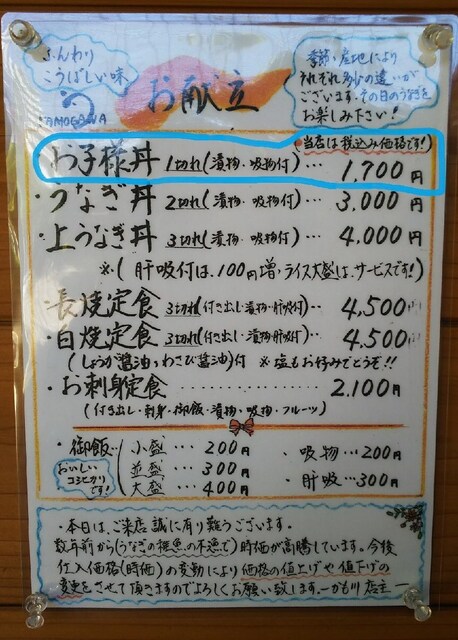 ふんわり
こうばしい味
KAMOGAWA
お献立
季節・産地により
それぞれ多少の違いが
ございます。その日のうなぎを
お楽しみ下さい!
当店は税込み価格です!
お子様丼 1切れ(漬物・吸物付)… 1,700円
・うなぎ丼 2切れ(漬物・吸物付)… 3,000円
・上うなぎ丼 3切れ(漬物・吸物付)… 4,000円
※(肝吸付は、100円増・ライス大盛は、サービスです!)
・長焼定食 3切れ(付き出し・漬物・肝吸付)… 4,500円
・白焼定食 3切れ(付き出し・漬物・肝吸付)… 4,500円
(しょうが醤油・わさび醤油)付 ※塩もお好みでどうぞ!!
・お刺身定食 ………… 2,100円
(付き出し・刺身・御飯・漬物・吸物・フルーツ)
・御飯… 小盛 … 200円
並盛 … 300円
大盛 … 400円
おいしい
コシヒカリ
です!
・吸物 … 200円
・肝吸 … 300円
・本日は、ご来店 誠に有り難うございます。
数年前から(うなぎの稚魚の不漁で)時価が高騰しています。今後
仕入価格(時価)の変動により価格の値上げや値下げの
変更をさせて頂きますのでよろしくお願い致します。ーかも川 店主ー